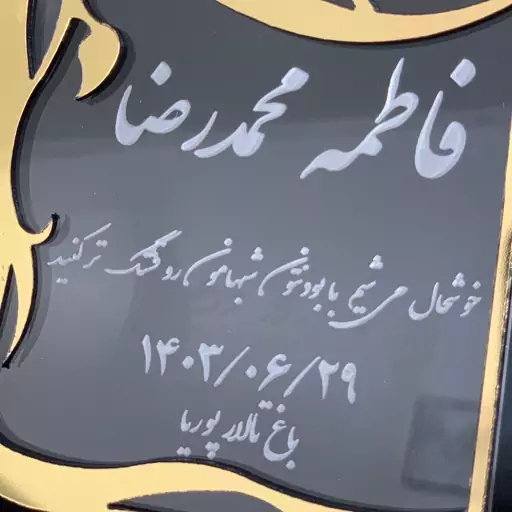 فاطمه محمدرضا
خوشحال می شیم با بودنتون شبهامون رو قشنگ ترکنید
۱۴۰۳/۰۶/۲۹
باغ تالار پوریا